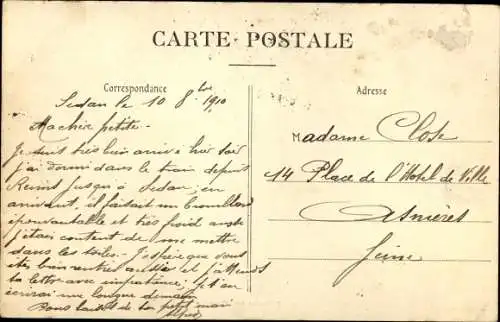 CARTE POSTALE
Correspondance
Sedan le 10 8bre 1910
Ma chère petite -
Je suis très bien arrivé hier soir
j'ai dormi dans le train depuis
Reims jusqu'à Sedan, en
arrivant, il faisait un brouillard
épouvantable et très froid aussi
j'étais content de me mettre
dans les toiles. J'espère que vous
êtes bien rentrés aussi et j'attends
ta lettre avec impatience. Je t'en
écrirai une longue demain
Bons baisers de ton petit mari
Adresse
Madame Close
14 Place de l'Hôtel de Ville
Asnières
Seine